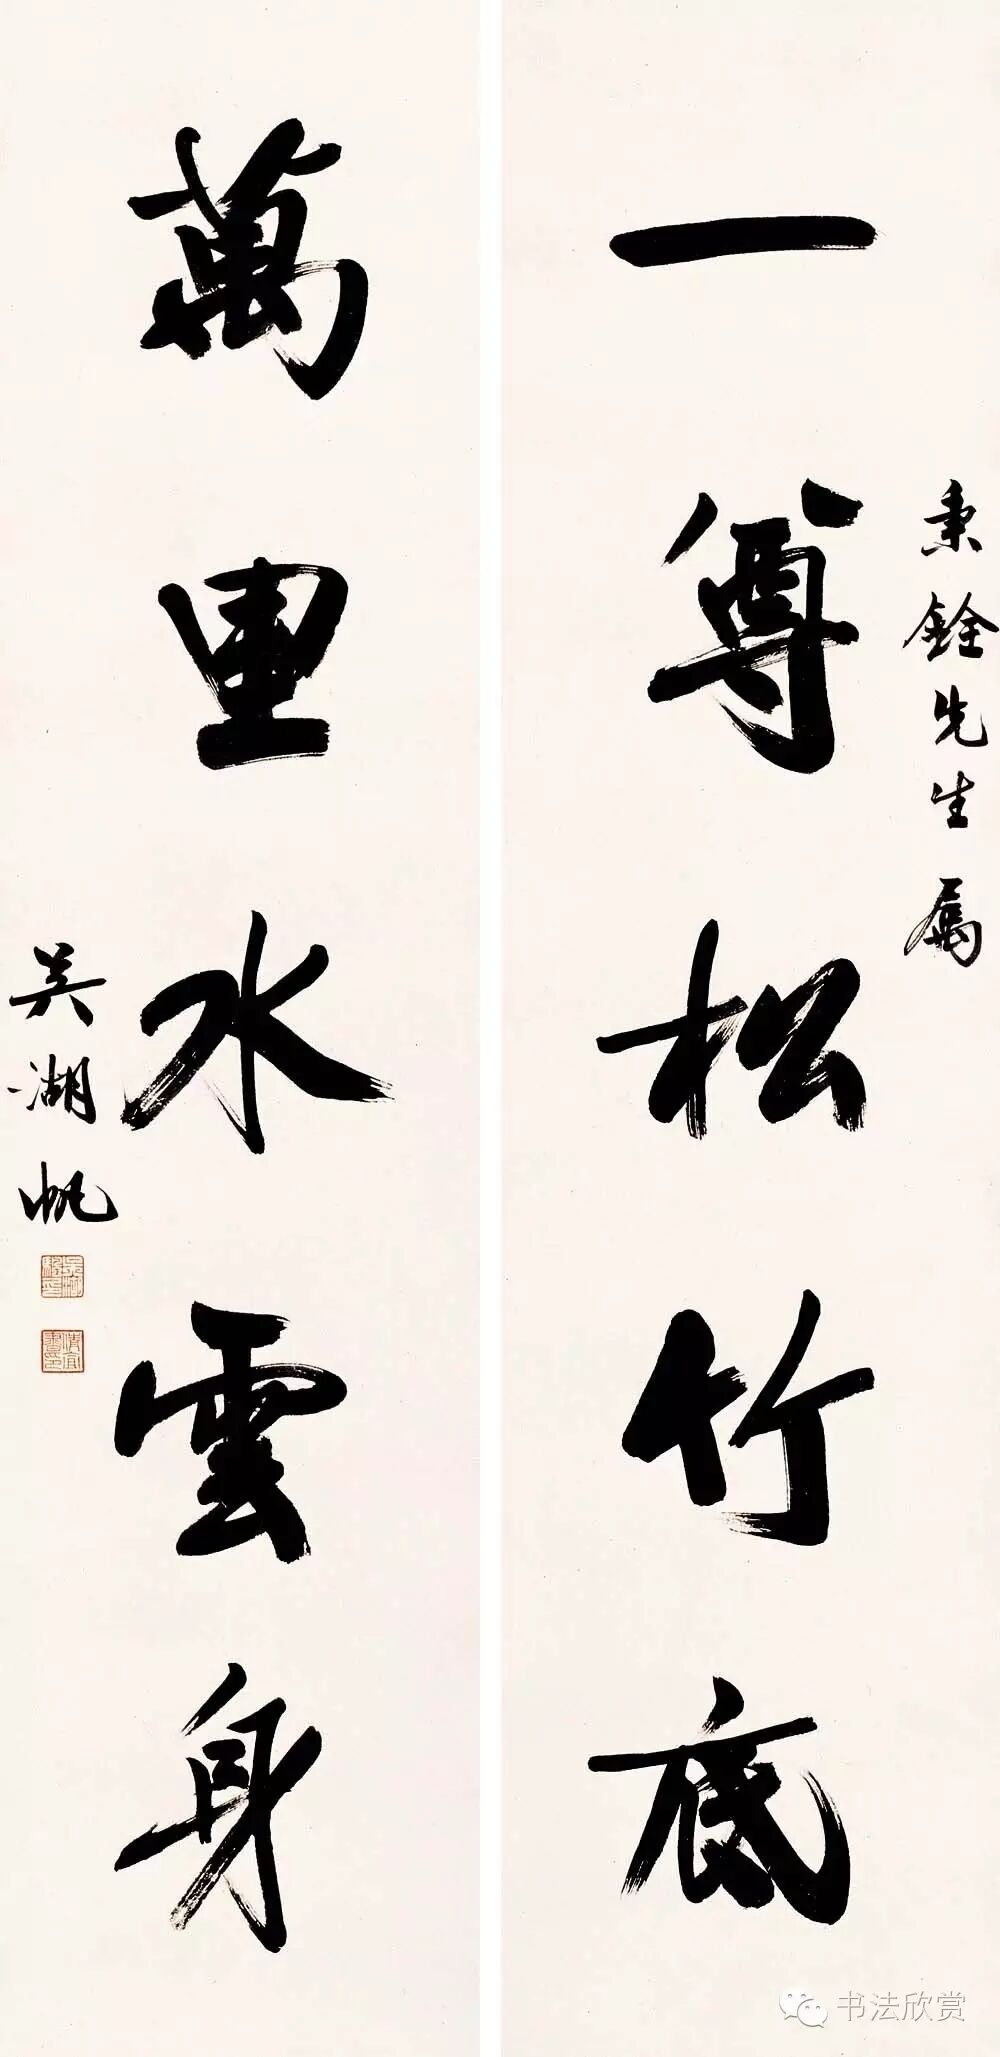 一尊松竹底
秉銓先生属
萬里水雲身
吴湖帆
书法欣赏